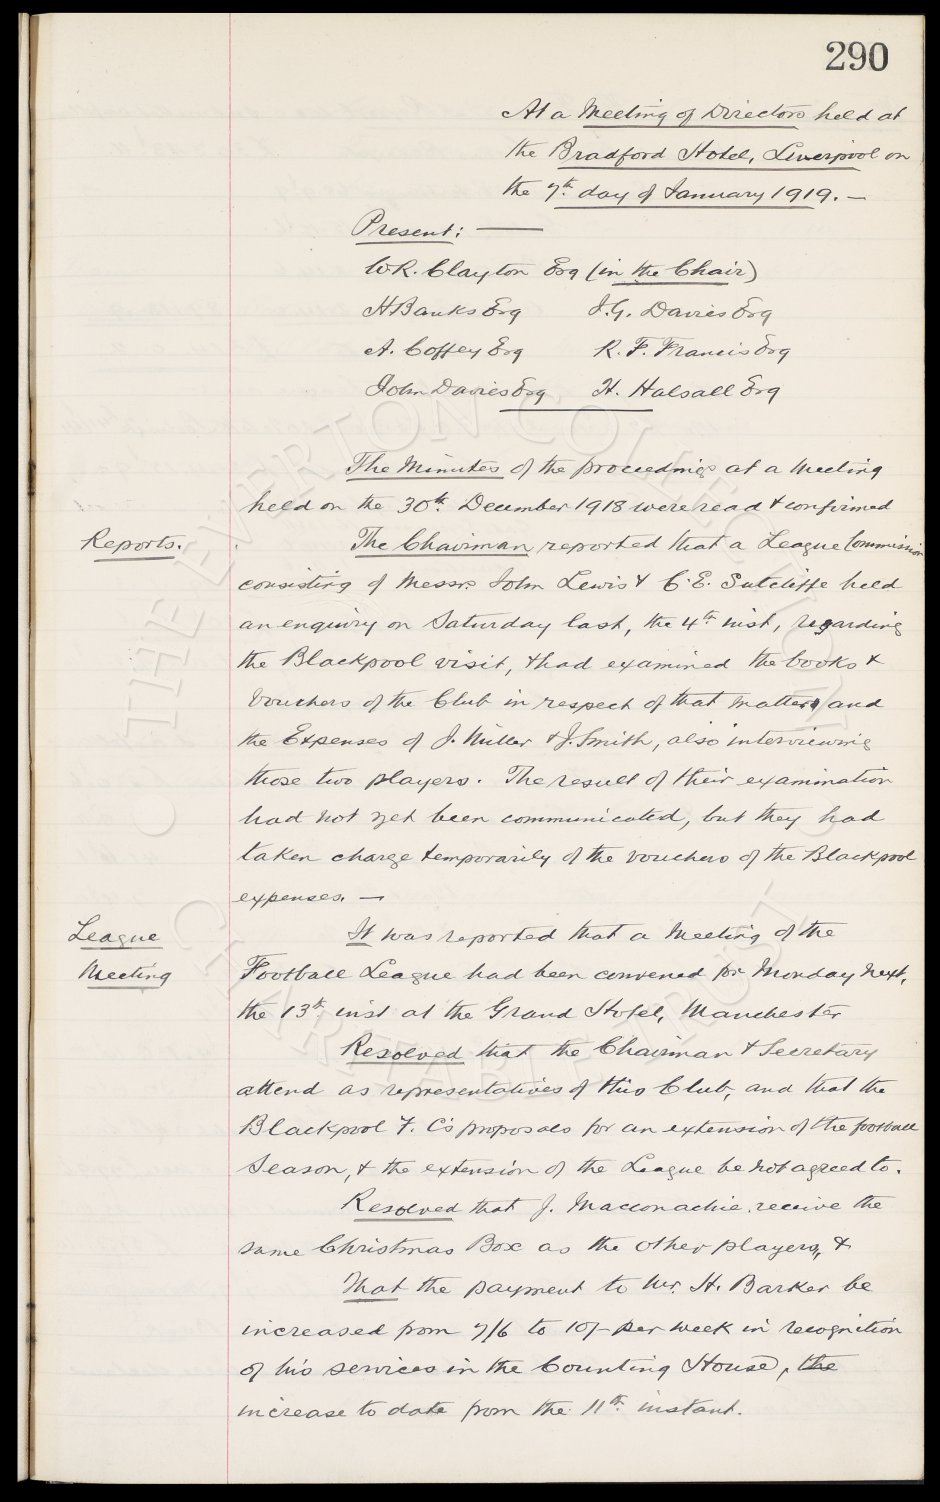 290
At a Meeting of Directors held at
the Bradford Hotel, Liverpool on
the 7th. day of January 1919. —
Present: —
W.R. Clayton Esq (in the Chair)
H Banks Esq J.G. Davies Esq
A. Coffey Esq R. F. Francis Esq
John Davies Esq H. Halsall Esq
The Minutes of the proceedings at a Meeting
held on the 30th. December 1918 were read & confirmed
Reports. The Chairman reported that a League Commission
consisting of Messrs. John Lewis & C.E. Sutcliffe held
an enquiry on Saturday last, the 4th inst, regarding
the Blackpool visit, & had examined the books &
Vouchers of the Club in respect of that matter, and
the Expenses of J. Miller & J. Smith, also interviewing
those two players. The result of their examination
had not yet been communicated, but they had
taken charge temporarily of the vouchers of the Blackpool
expenses. —
League It was reported that a Meeting of the
Meeting Football League had been convened for Monday next,
the 13th. inst at the Grand Hotel, Manchester
Resolved that the Chairman & Secretary
attend as representatives of this Club, and that the
Blackpool F. C's proposals for an extension of the football
Season, & the extension of the League be not agreed to.
Resolved that J. Macconachie receive the
same Christmas Box as the other players, &
That the payment to Mr. H. Barker be
increased from 7/6 to 10/- per week in recognition
of his services in the Counting House, the
increase to date from the 11th. instant.
© THE EVERTON COLLECTION
CHARITABLE TRUST